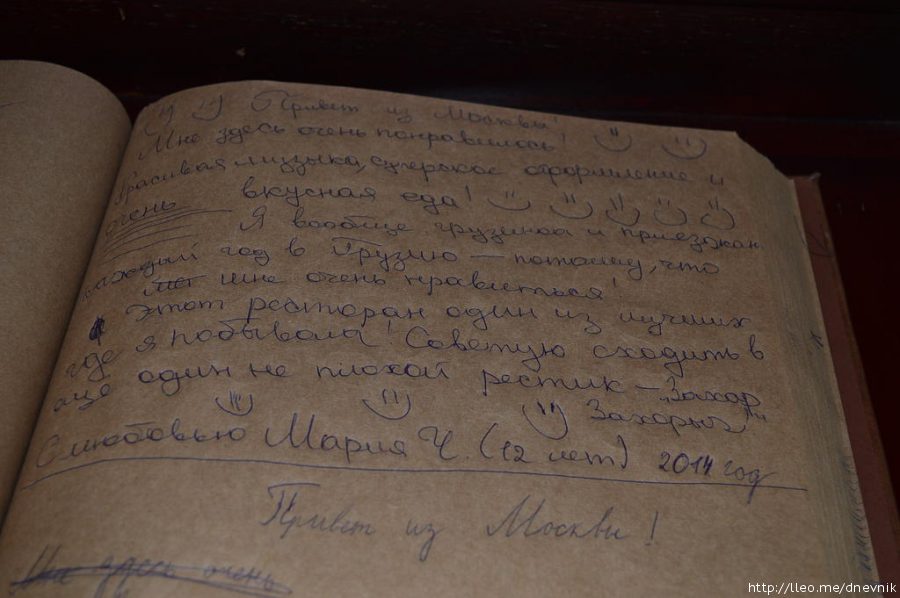 Привет из Москвы!
Мне здесь очень понравилось!
Красивая музыка, суперское оформление и
очень вкусная еда!
Я вообще грузинка и приезжаю
каждый год в Грузию — потому, что
мне очень нравиться!
Этот ресторан один из лучших
где я побывала! Советую сходить в
еще один не плохой рестик – „Захар
Захарыч"
С любовью Мария Ч. (12 лет) 2014 год
Привет из Москвы!
Мне здесь очень
http://lleo.me/dnevnik